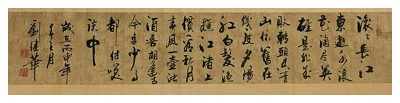 滚滚長江
東逝水浪
花淘尽英
雄是非成
敗轉頭空青
山依舊在
幾度夕陽
红白髮漁
樵江渚上
慣看秋月
春風一壺濁
酒喜相逢古
今多少事
都付笑
談中
歲在丙申年
月
劉继華